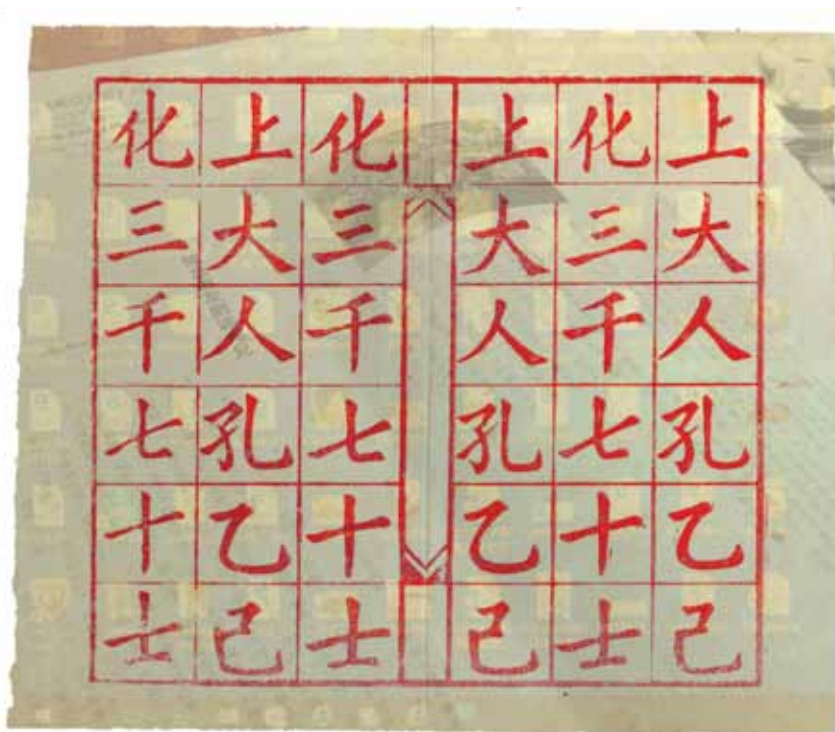 上大人孔乙己
化三千七十士
上大人孔乙己
化三千七十士
上大人孔乙己
化三千七十士